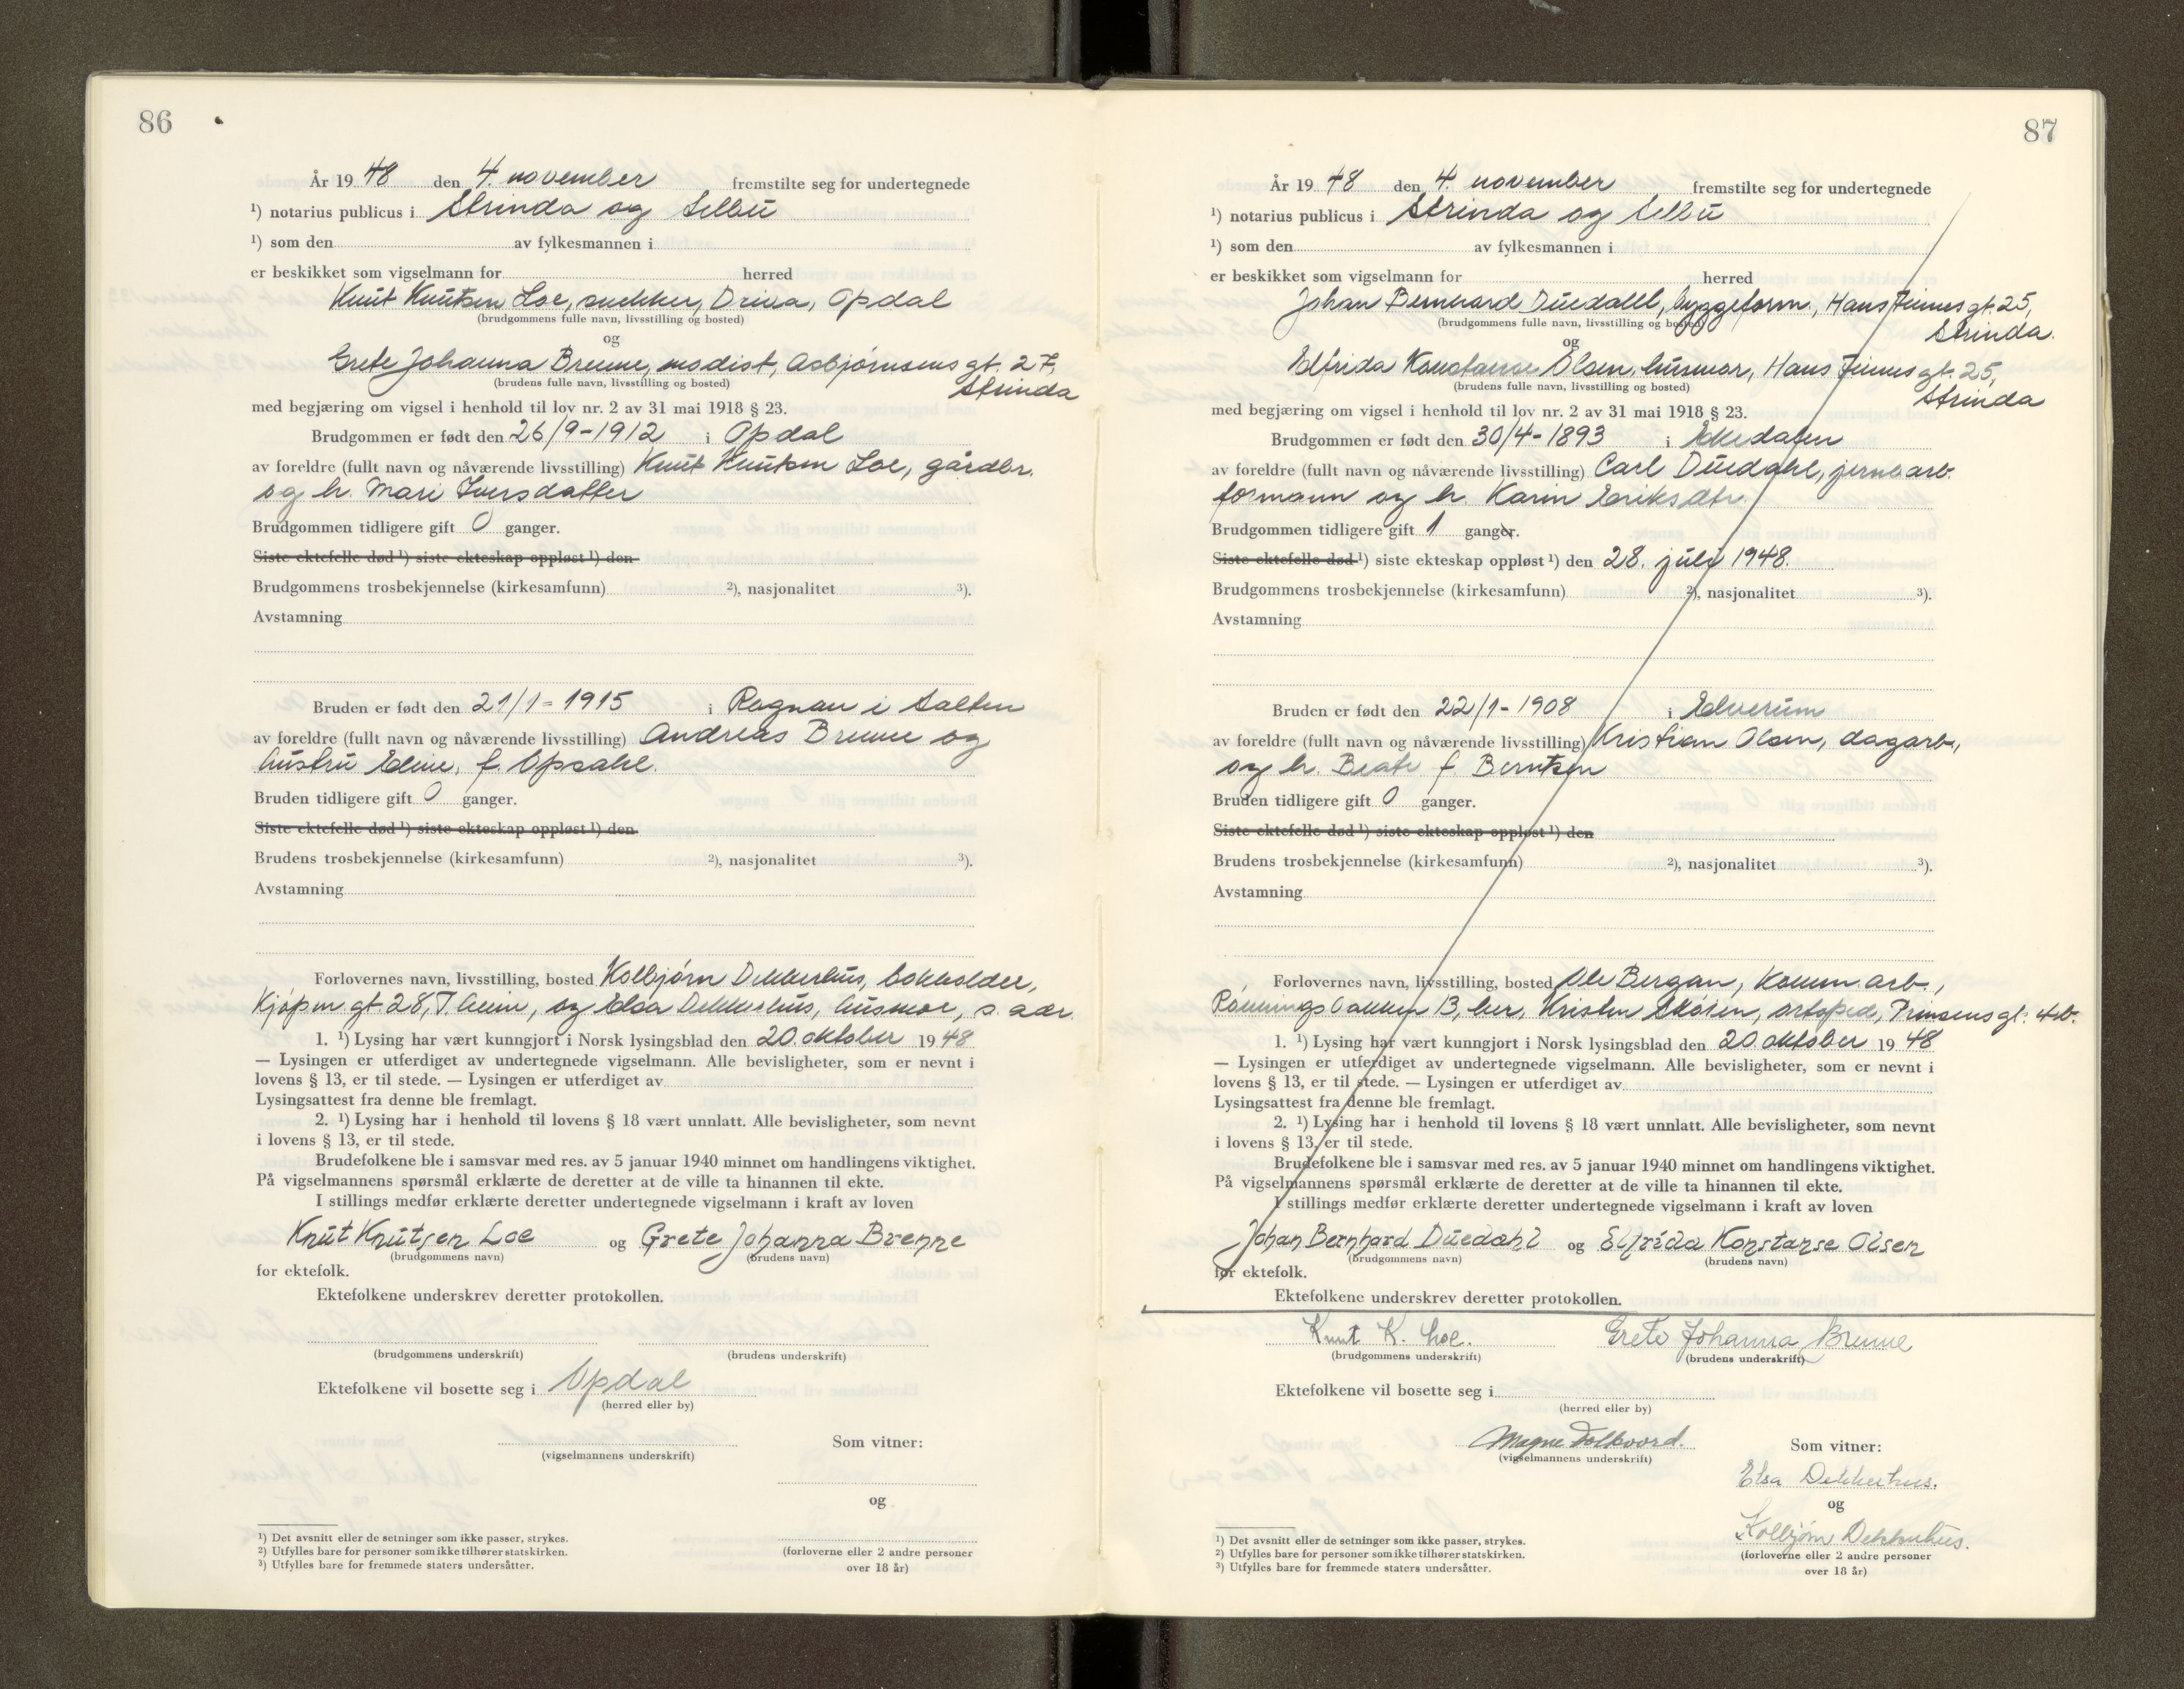 86
År 1948 den 4. november fremstilte seg for undertegnede
¹) notarius publicus i Strinda og Selbu
¹) som den av fylkesmannen i
er beskikket som vigselmann for herred
Knut Knutsen Loe, snekker, Driva, Opdal
(brudgommens fulle navn, livsstilling og bosted)
og
Grete Johanna Brenne, modist, Asbjørnsens gt. 27,
Strinda
(brudens fulle navn, livsstilling og bosted)
med begjæring om vigsel i henhold til lov nr. 2 av 31 mai 1918 § 23.
Brudgommen er født den 26/9-1912 i Opdal
av foreldre (fullt navn og nåværende livsstilling) Knut Knutsen Loe, gårdbr.
og h. Mari Iversdatter
Brudgommen tidligere gift 0 ganger.
Siste ektefelle død ¹) siste ekteskap oppløst ¹) den
Brudgommens trosbekjennelse (kirkesamfunn) ²), nasjonalitet ³).
Avstamning
Bruden er født den 21/1-1915 i Rognan i Salten
av foreldre (fullt navn og nåværende livsstilling) Andreas Brenne og
hustru Eline, f. Opsahl.
Bruden tidligere gift 0 ganger.
Siste ektefelle død ¹) siste ekteskap oppløst ¹) den
Brudens trosbekjennelse (kirkesamfunn) ²), nasjonalitet ³).
Avstamning
Forlovernes navn, livsstilling, bosted Kolbjørn Dekkerhus, bokholder,
Kjøpm. gt. 28, T.heim, og Elsa Dekkerhus, husmor, s. adr.
1. ¹) Lysing har vært kunngjort i Norsk lysingsblad den 20. oktober 1948
— Lysingen er utferdiget av undertegnede vigselmann. Alle bevisligheter, som er nevnt i
lovens § 13, er til stede. — Lysingen er utferdiget av
Lysingsattest fra denne ble fremlagt.
2. ¹) Lysing har i henhold til lovens § 18 vært unnlatt. Alle bevisligheter, som nevnt
i lovens § 13, er til stede.
Brudefolkene ble i samsvar med res. av 5 januar 1940 minnet om handlingens viktighet.
På vigselmannens spørsmål erklærte de deretter at de ville ta hinannen til ekte.
I stillings medfør erklærte deretter undertegnede vigselmann i kraft av loven
Knut Knutsen Loe og Grete Johanna Brenne
(brudgommens navn) (brudens navn)
for ektefolk.
Ektefolkene underskrev deretter protokollen.
(brudgommens underskrift) (brudens underskrift)
Ektefolkene vil bosette seg i Opdal
(herred eller by)
(vigselmannens underskrift) Som vitner:
og
(forloverne eller 2 andre personer
over 18 år)
¹) Det avsnitt eller de setninger som ikke passer, strykes.
²) Utfylles bare for personer som ikke tilhører statskirken.
³) Utfylles bare for fremmede staters undersåtter.
87
År 1948 den 4. november fremstilte seg for undertegnede
¹) notarius publicus i Strinda og Selbu
¹) som den av fylkesmannen i
er beskikket som vigselmann for herred
Johan Bernhard Duedahl, byggeform, Hans Finnes gt. 25,
Strinda.
(brudgommens fulle navn, livsstilling og bosted)
og
Elfrida Konstanse Olsen, husmor, Hans Finnes gt. 25,
Strinda
(brudens fulle navn, livsstilling og bosted)
med begjæring om vigsel i henhold til lov nr. 2 av 31 mai 1918 § 23.
Brudgommen er født den 30/4-1893 i
av foreldre (fullt navn og nåværende livsstilling) Carl Duedahl, jernb.arb.
formann og h. Karin Eriksdtr.
Brudgommen tidligere gift 1 ganger.
Siste ektefelle død ¹) siste ekteskap oppløst ¹) den 28. juli 1948.
Brudgommens trosbekjennelse (kirkesamfunn) ²), nasjonalitet ³).
Avstamning
Bruden er født den 22/1-1908 i Elverum
av foreldre (fullt navn og nåværende livsstilling) Kristian Olsen, dagarb.,
og h. Beate f. Berntsen
Bruden tidligere gift 0 ganger.
Siste ektefelle død ¹) siste ekteskap oppløst ¹) den
Brudens trosbekjennelse (kirkesamfunn) ²), nasjonalitet ³).
Avstamning
Forlovernes navn, livsstilling, bosted Ole Bergan, komm. arb.,
Rønningsbakken 13, her, Kristen Skólen, ortoped, Prinsens gt. 4b.
1. ¹) Lysing har vært kunngjort i Norsk lysingsblad den 20. oktober 1948
— Lysingen er utferdiget av undertegnede vigselmann. Alle bevisligheter, som er nevnt i
lovens § 13, er til stede. — Lysingen er utferdiget av
Lysingsattest fra denne ble fremlagt.
2. ¹) Lysing har i henhold til lovens § 18 vært unnlatt. Alle bevisligheter, som nevnt
i lovens § 13, er til stede.
Brudefolkene ble i samsvar med res. av 5 januar 1940 minnet om handlingens viktighet.
På vigselmannens spørsmål erklærte de deretter at de ville ta hinannen til ekte.
I stillings medfør erklærte deretter undertegnede vigselmann i kraft av loven
Johan Bernhard Duedahl og Elfrida Konstanse Olsen
(brudgommens navn) (brudens navn)
for ektefolk.
Ektefolkene underskrev deretter protokollen.
Knut K. Loe. Grete Johanna Brenne
(brudgommens underskrift) (brudens underskrift)
Ektefolkene vil bosette seg i
(herred eller by)
Magne
(vigselmannens underskrift) Som vitner:
Elsa Dekkerhus.
og
Kolbjørn Dekkerhus.
(forloverne eller 2 andre personer
over 18 år)
¹) Det avsnitt eller de setninger som ikke passer, strykes.
²) Utfylles bare for personer som ikke tilhører statskirken.
³) Utfylles bare for fremmede staters undersåtter.